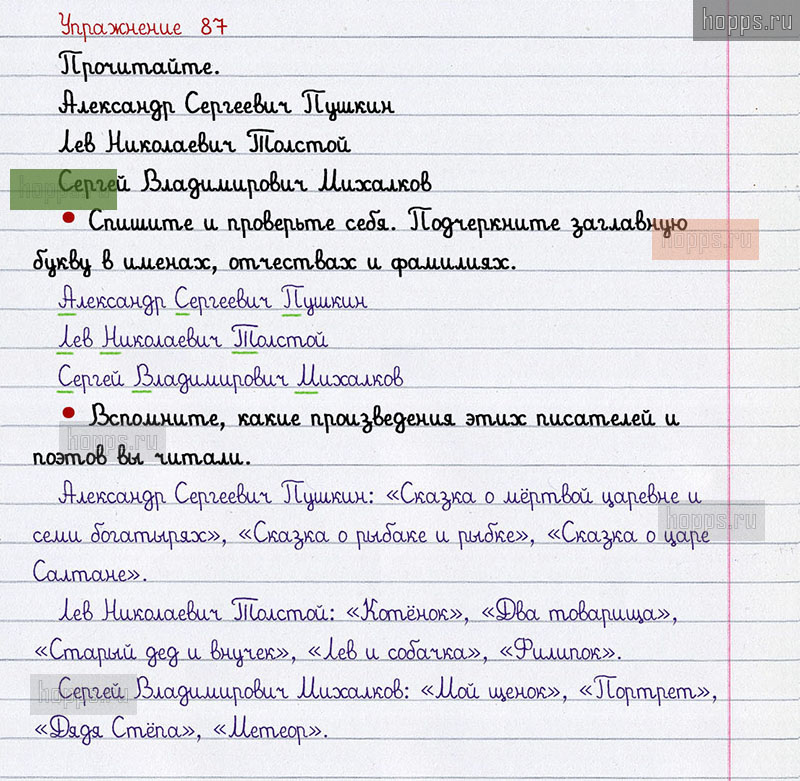 hopps.ru
Упражнение 87
Прочитайте.
Александр Сергеевич Пушкин
Лев Николаевич Толстой
hopps.ru
Сергей Владимирович Михалков
• Спишите и проверьте себя. Подчеркните заглавную
hopps.ru
букву в именах, отчествах и фамилиях.
Александр Сергеевич Пушкин
Лев Николаевич Толстой
Сергей Владимирович Михалков
• Вспомните, какие произведения этих писателей и
hopps.ru
поэтов вы читали.
Александр Сергеевич Пушкин: «Сказка о мёртвой царевне и
hopps.ru
семи богатырях», «Сказка о рыбаке и рыбке», «Сказка о царе
Салтане».
Лев Николаевич Толстой: «Котёнок», «Два товарища»,
«Старый дед и внучек», «Лев и собачка», «Филипок».
hopps.ru
Сергей Владимирович Михалков: «Мой щенок», «Портрет»,
«Дядя Стёпа», «Метеор».